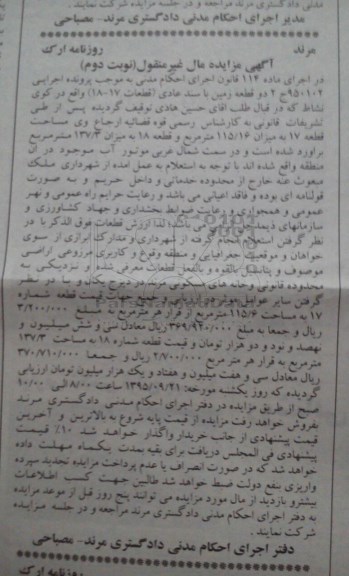 مدنی دادگستری مرند مراجعه و در جلسه مزایده شرکت نمایند.
مدیر اجرای احکام مدنی دادگستری مرند- مصباحی
مرند روزنامه ارک
آگهی مزایده مال غیرمنقول(نوبت دوم)
در اجرای ماده ۱۱۴ قانون اجرای احکام مدنی به موجب پرونده اجرایی
۹۵۰۱۰۲ج ۲ دو قطعه زمین با سند عادی (قطعات ۱۷-۱۸) واقع در کوی
نشاط که در قبال طلب آقای حسین هادی توقیف گردیده پس از طی
تشریفات قانونی به کارشناس رسمی قوه قضائیه ارجاع وی مساحت
قطعه ۱۷ به میزان ۱۱۵/۱۶ مترمربع و قطعه ۱۸ به میزان ۱۳۷/۳ مترمربع
برآورد شده است و در سمت شمال غربی موتور آب موجود در آن
منطقه واقع شده اند با توجه به استعلام به عمل آمده از شهرداری ملک
مبعوث عنه خارج از محدوده خدماتی و داخل حریم و به صورت
قولنامه ای بوده و فاقد اعیانی می باشد و رعایت حرایم راه عمومی و نهر
عمومی و همجواری و رعایت ضوابط بخشداری و جهاد کشاورزی و
سازمانهای ذیمدخل می باشد لذا ارزش قطعات فوق الذکر با در
نظر گرفتن استعلام انجام گرفته از شهرداری و مدارک ابرازی از سوی
خواهان و موقعیت جغرافیایی و منطقه وقوع و کاربری مزروعی اراضی
موصوف و پتانسیل بالقوه و بالفعل قطعات معرفی شده و نزدیکی به
محدوده قانونی وخانه های مسکونی مرند در درج یکانی و با در نظر
گرفتن سایر عوامل موثر در ارزیابی و جمیع جهات قیمت قطعه شماره
۱۷ به مساحت ۱۱۵/۶ مترمربع از قرار هر مترمربع به مبلغ ۳/۲۰۰/۰۰۰
ریال و جمعا به مبلغ ۳۶۹/۹۲۰/۰۰۰ ریال معادل سی و شش میلیون و
نهصد و نود و دو هزار تومان و قیمت قطعه شماره ۱۸ به مساحت ۱۳۷/۳
مترمربع به قرار هر متر مربع ۲/۷۰۰/۰۰۰ ریال و جمعا ۳۷۰/۷۱۰/۰۰۰
ریال معادل سی و هفت میلیون و هفتاد و یک هزار تومان ارزیابی
گردیده که روز یکشنبه مورخه: ۱۳۹۵/۰۹/۲۱ ساعت ۸/۰۰ الی ۱۰/۰۰
صبح از طریق مزایده در دفتر اجرای احکام مدنی دادگستری مرند
بفروش خواهد رفت مزایده از قیمت پایه شروع به بالاترین و آخرین
قیمت پیشنهادی از جانب خریدار واگذار خواهد شد ۱۰٪ قیمت
پیشنهادی فی المجلس دریافت برای بقیه بمدت یکماه مهلت داده
خواهد شد که در صورت انصراف یا عدم پرداخت مزایده تجدید سپرده
واریزی بنفع دولت ضبط خواهد شد طالبین جهت کسب اطلاعات
بیشترو بازدید از مال مورد مزایده می توانند پنج روز قبل از موعد مزایده
به دفتر اجرای احکام مدنی دادگستری مرند مراجعه و در جلسه مزایده
شرکت نمایند.
دفتر اجرای احکام مدنی دادگستری مرند- مصباحی
روزنامه ارک